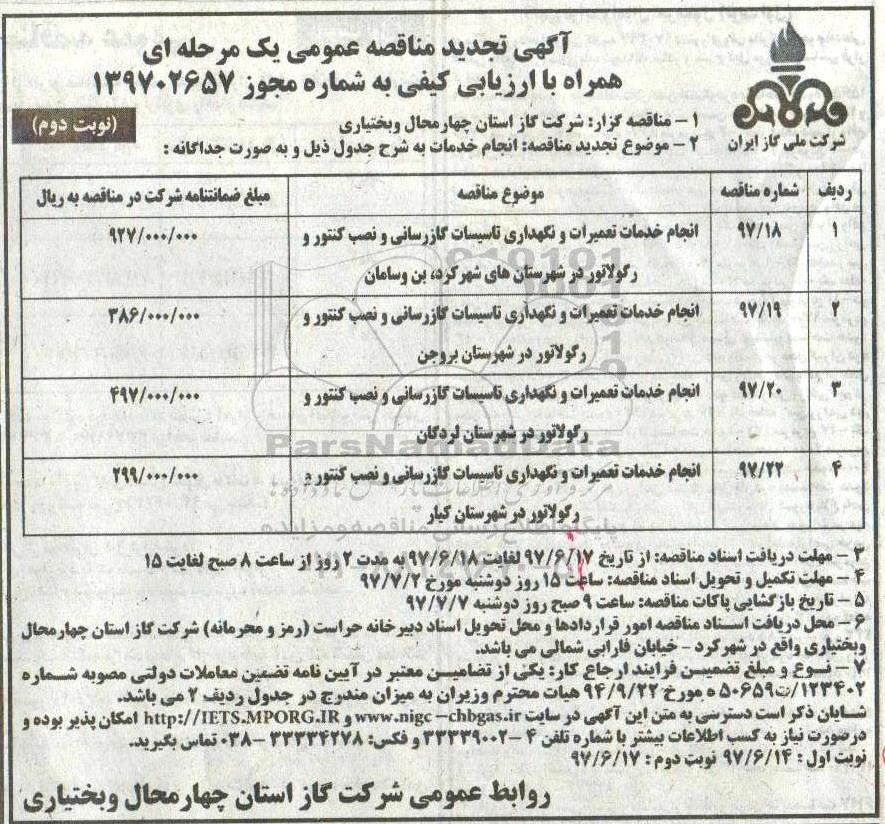 آگهی تجدید مناقصه عمومی یک مرحله ای
همراه با ارزیابی کیفی به شماره مجوز ۱۳۹۷۰۲۶۵۷
شرکت ملی گاز ایران
(نوبت دوم)
۱ - مناقصه گزار: شرکت گاز استان چهارمحال وبختیاری
۲ - موضوع تجدید مناقصه: انجام خدمات به شرح جدول ذیل و به صورت جداگانه :
ردیف شماره مناقصه موضوع مناقصه مبلغ ضمانتنامه شرکت در مناقصه به ریال
۱ ۹۷/۱۸ انجام خدمات تعمیرات و نگهداری تاسیسات گازرسانی و نصب کنتور و ۹۲۷/۰۰۰/۰۰۰
رگولاتور در شهرستان های شهرکرد، بن وسامان
۲ ۹۷/۱۹ انجام خدمات تعمیرات و نگهداری تاسیسات گازرسانی و نصب کنتور و ۳۸۶/۰۰۰/۰۰۰
رگولاتور در شهرستان بروجن
۳ ۹۷/۲۰ انجام خدمات تعمیرات و نگهداری تاسیسات گازرسانی و نصب کنتور و ۴۹۷/۰۰۰/۰۰۰
رگولاتور در شهرستان لردگان
۴ ۹۷/۲۲ انجام خدمات تعمیرات و نگهداری تاسیسات گازرسانی و نصب کنتور و ۲۹۹/۰۰۰/۰۰۰
رگولاتور در شهرستان کیار
ParsNamadData
۳ - مهلت دریافت اسناد مناقصه: از تاریخ ۹۷/۶/۱۷ لغایت ۹۷/۶/۱۸ به مدت ۲ روز از ساعت ۸ صبح لغایت ۱۵
۴ - مهلت تکمیل و تحویل اسناد مناقصه: ساعت ۱۵ روز دوشنبه مورخ ۹۷/۷/۲
۵ - تاریخ بازگشایی پاکات مناقصه: ساعت ۹ صبح روز دوشنبه ۹۷/۷/۷
۶ - محل دریافت اسناد مناقصه امور قراردادها و محل تحویل اسناد دبیرخانه حراست (رمز و محرمانه) شرکت گاز استان چهارمحال
وبختیاری واقع در شهرکرد - خیابان فارابی شمالی می باشد.
۷ - نوع و مبلغ تضمین فرایند ارجاع کار: یکی از تضامین معتبر در آیین نامه تضمین معاملات دولتی مصوبه شماره
۱۲۳۴۰۲/ت۵۰۶۵۹ ه مورخ ۹۴/۹/۲۲ هیات محترم وزیران به میزان مندرج در جدول ردیف ۲ می باشد.
شایان ذکر است دسترسی به متن این آگهی در سایت www.nigc-chbgas.ir و http://IETS.MPORG.IR امکان پذیر بوده و
درصورت نیاز به کسب اطلاعات بیشتر با شماره تلفن ۴ - ۳۳۳۳۹۰۰۲ و فکس: ۳۳۳۳۴۲۷۸ - ۰۳۸ تماس بگیرید.
نوبت اول : ۹۷/۶/۱۴ نوبت دوم : ۹۷/۶/۱۷
روابط عمومی شرکت گاز استان چهارمحال وبختیاری